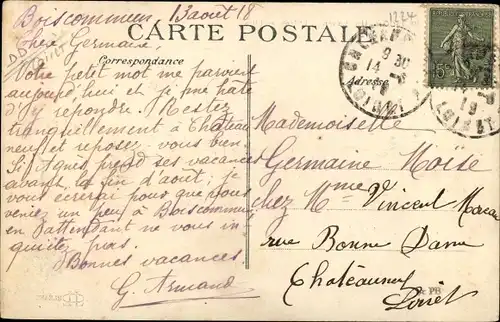 CARTE POSTALE
Correspondance
Adresse
1224
Boiscommun 13 août 18
Chère Germaine,
Votre petit mot me parvient
aujourd'hui et je me hâte
d'y répondre. Restez
tranquillement à Château
neuf et reposez vous bien.
Si Agnès prend ses vacances
avant la fin d'août, je
vous écrirai pour que vous
veniez un peu à Boiscommun
en attendant ne vous in-
quiétez pas.
Bonnes vacances
G. Armand
Mademoiselle
Germaine Moïse
chez Mme Vincent
rue Bonne Dame
Châteauneuf
Loiret